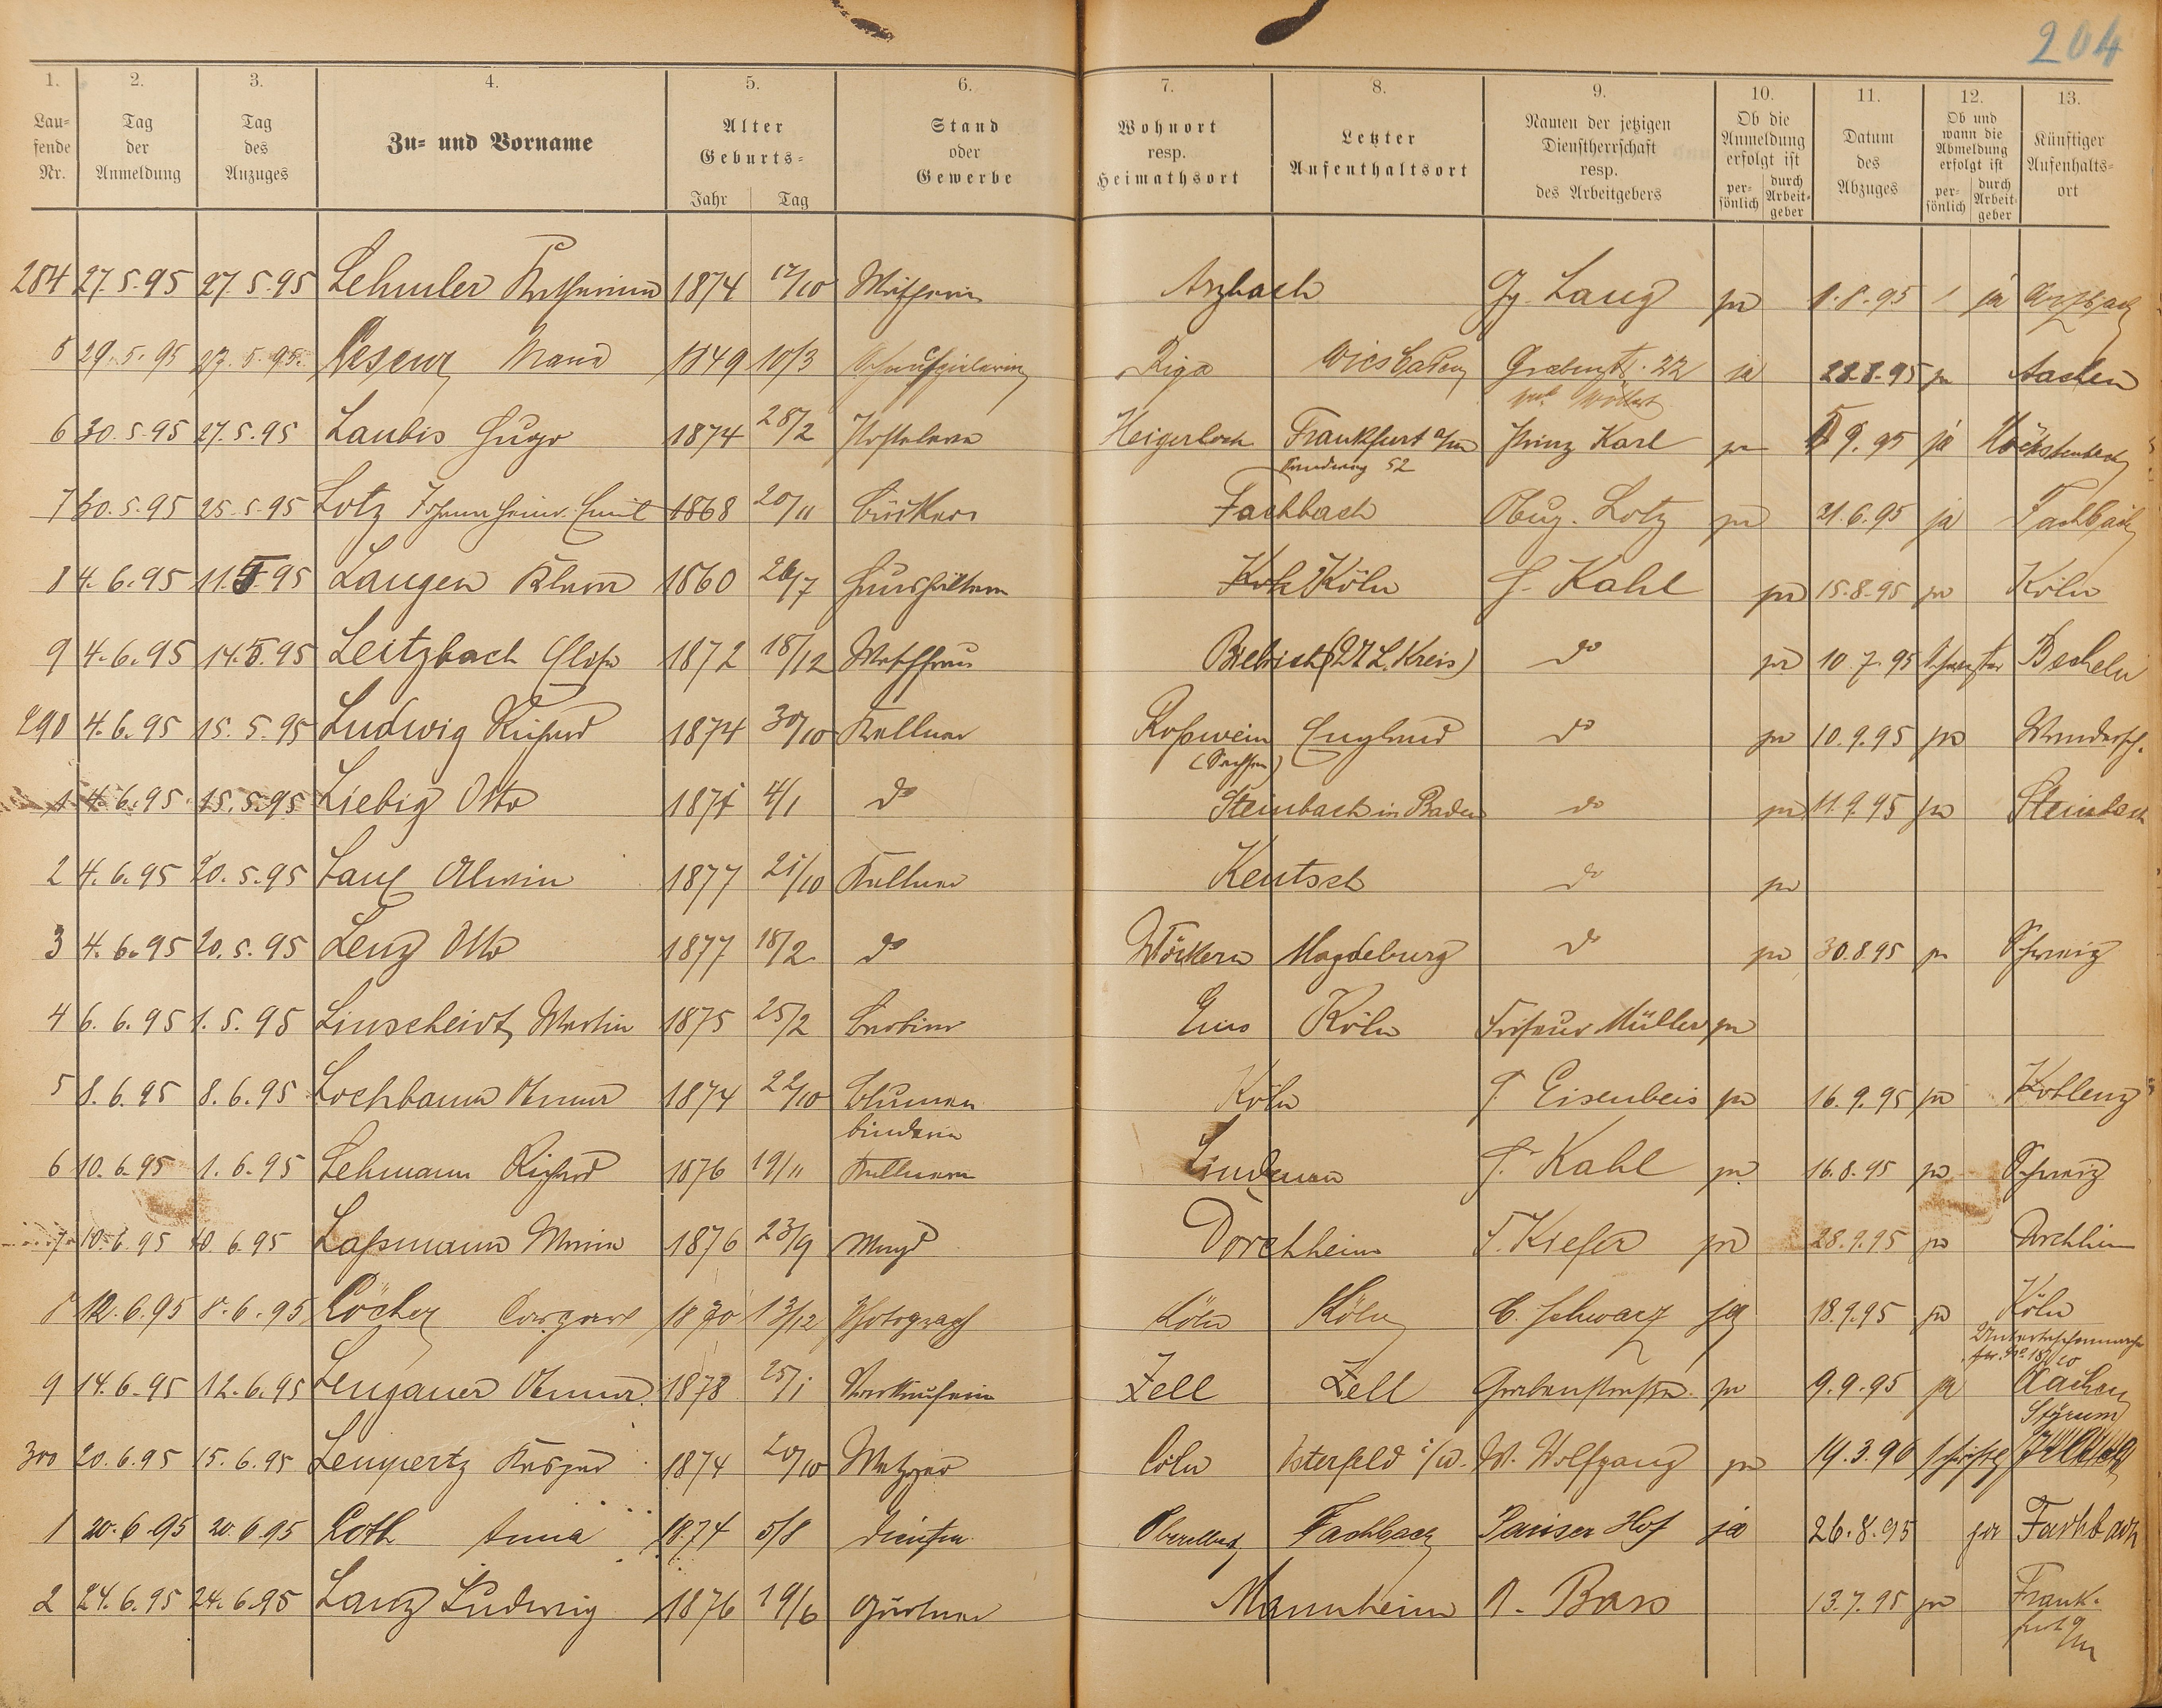 204
1. 2. 3. 4. 5. 6. 7. 8. 9. 10. 11. 12. 13.
Lau-
fende
Nr.
Tag
der
Anmeldung
Tag
des
Anzuges
Zu- und Vorname
Alter
Geburts-
Jahr Tag
Stand
oder
Gewerbe
Wohnort
resp.
Heimathsort
Letzter
Aufenthaltsort
Namen der jetzigen
Dienstherrschaft
resp.
des Arbeitgebers
Ob die
Anmeldung
erfolgt ist
per-
sönlich
durch
Arbeit-
geber
Datum
des
Abzuges
Ob und
wann die
Abmeldung
erfolgt ist
per-
sönlich
durch
Arbeit-
geber
Künftiger
Aufenhalts-
ort
284 27.5.95 27.5.95 Lehmler Katharina 1874 12/10 Arzbach Gg. Lang ja 1.8.95 ja Arzbach
5 29.5.95 27.5.95. 1849 10/3 Schauspielerin Riga Wiesbaden Grabenstr. 22 ja 28.8.95 ja Aachen
6 30.5.95 27.5.95 Laubis Hugo 1874 28/2 Heigerloch Frankfurt a/m Prinz Karl ja 5 9.95 ja Höchstenbach
52
7 30.5.95 25.5.95 Lotz Johann Heinr. Emil 1868 20/11 Bäcker Fachbach Aug. Lotz ja 21.6.95 ja Fachbach
8 4.6.95 11.5.95 Langen Klara 1860 26/7 Haushälterin Köln H. Kahl ja 15.8.95 ja Köln
9 4.6.95 14.5.95 Leitzbach Elise 1872 18/12 Waschfrau Biebrich (U. L. Kreis) do ja 10.7.95 Becheln
290 4.6.95 15.5.95 Ludwig Richard 1874 30/10 Kellner Roßwein England do ja 10.9.95 ja Wandersch.
(Sachsen)
1 4.6.95 15.5.95 Liebig Otto 4/1 do Steinbach in Baden do ja 11.9.95 ja Steinbach
2 4.6.95 20.5.95 Alwin 1877 21/10 Kellner Kentsch do ja
3 4.6.95 20.5.95 Lenz Otto 1877 18/2 do Magdeburg do ja 30.8.95 ja Schweiz
4 6.6.95 1.5.95 Linscheidt Martin 1875 25/2 Barbier Ems Köln Friseur Müller ja
5 8.6.95 8.6.95 Lochbaum Anna 1874 22/10 Blumen Köln F. Eisenbeis ja 16.9.95 ja Koblenz
binderin
6 10.6.95 1.6.95 Lehmann Richard 1876 19/11 Kellner Lindenau H. Kahl ja 16.8.95 ja Schweiz
7 10.6.95 10.6.95 Laßmann Minna 1876 23/9 Magd Dorchheim J. Kiefer ja 28.9.95 ja Dorchheim
8 12.6.95 8.6.95 Löcher Caspar 13/12 Photograph Köln Köln C. Schwarz ja 18.9.95 ja Köln
9 14.6.95 12.6.95 Lengauer Anna 1878 25/1 Verkäuferin Zell Zell Grabenstrasse ja 9.9.95 ja Aachen
Styrum
300 20.6.95 15.6.95 Lempertz Kaspar 1874 20/10 Metzger Cöln Osterfeld i/W. W. Wolfgang ja 19.3.96 schriftl
1 20.6.95 20.6.95 Loth Anna 1874 5/8 Pariser Hof Fachbach ja 26.8.95 ja Fachbach
2 24.6.95 24.6.95 Lanz Ludwig 1876 19/6 Gärtner Mannheim A. Bass 13.7.95 ja Frank-
furt a/m